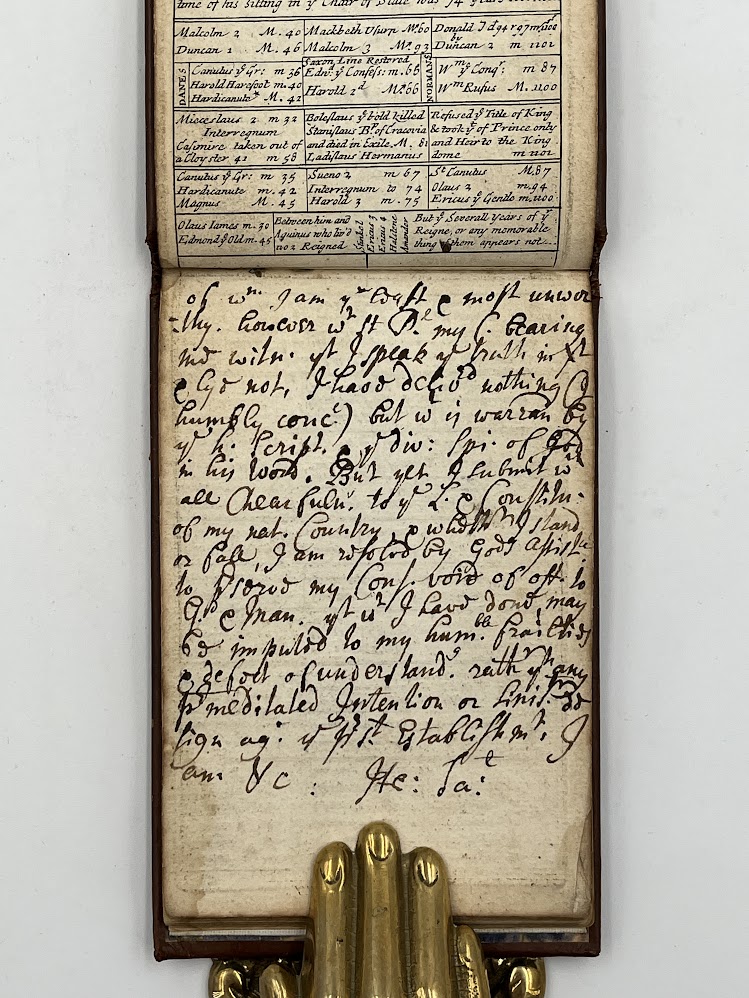 time of his sitting in yᵉ Chair of State was 74 years
Malcolm 2 M. 40 Mackbeth Usurp Mᵗ.60 Donald 7 d94 r97 m1100
Duncan 1 M. 46 Malcolm 3 Mᵗ.93 Duncan 2 m 1101
DANES
Canutus yᵉ Gr: m 36
Harold Harefoot m.40
Hardicanutᵉ M. 42
Saxon Line Restored
Edwᵈ yᵉ Confess: m.66
Harold 2ᵈ Mᵗ.66
NORMANS
Wᵐ yᵉ Conqʳ: m 87
Wᵐ Rufus M. 1100
Mieceslaus 2 m 32
Interregnum
Casimire taken out of
a Cloyster 41 m 58
Boleslaus yᵉ bold killed
Stanislaus Bᵖ of Cracovia
and died in Exile. M. 81
Ladislaus Hermanus
Refused yᵉ Title of King
& took yᵗ of Prince only
and Heir to the King
dome m 1102
Canutus yᵉ Gr: m 35
Hardicanute m. 42
Magnus M. 45
Sueno 2 m 67
Interregnum to 74
Harold 3 m. 75
Sᵗ Canutus M.87
Olaus 2 m.94
Ericus yᵉ Gentle m.1100
Olaus Iames m. 30
Edmond yᵉ Old m. 45
Between him and
Aquinus who liv'd
1102 Reigned
Stenkel
Ericus 3
Ericus 4
Halstene
But yᵉ Severall Years of yʳ
Reigne, or any memorable
thing of them appears not
of wᵐ. I am yᵉ least & most unwor
-thy. however wᵗ Sᵗ P.ˡ my C. bearing
me witn. yᵗ I speak yᵉ truth in Xᵗ
& lye not, I have deliv'ᵈ nothing (I
humbly conc.) but wᵗ is warran by
yᵉ h. Script. & yᵉ div: Spi. of God
in his Word. But yet I submit wᵗʰ
all Chearfuln. to yᵉ L. & Constitu-
of my nat. Country, & whethʳ I stand
or fall, I am resolved by Gods Assist
to pserve my Cons. void of off. to
G. & Man. yᵗ wᵗ I have done may
be imputed to my hum. frailties
& defect of understand.ᵍ rathʳ yⁿ any
pʳmeditated Intention or sinis. de
sign agᵗ. yᵉ pʳsᵗ. Establishmᵗ. I
am &c : He: Sa:ᵗ